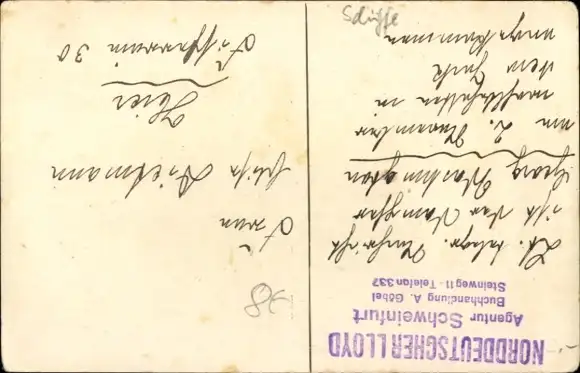 NORDDEUTSCHER LLOYD
Agentur Schweinfurt
Buchhandlung A. Göbel
Steinweg 11 - Telefon 337
Lt. telegr. Nachricht
ist der Dampfer
Georg Washington
am 2. November
wohlbehalten in
New York
angekommen
Frau
Hier
Fischerrain 30
Schiffe